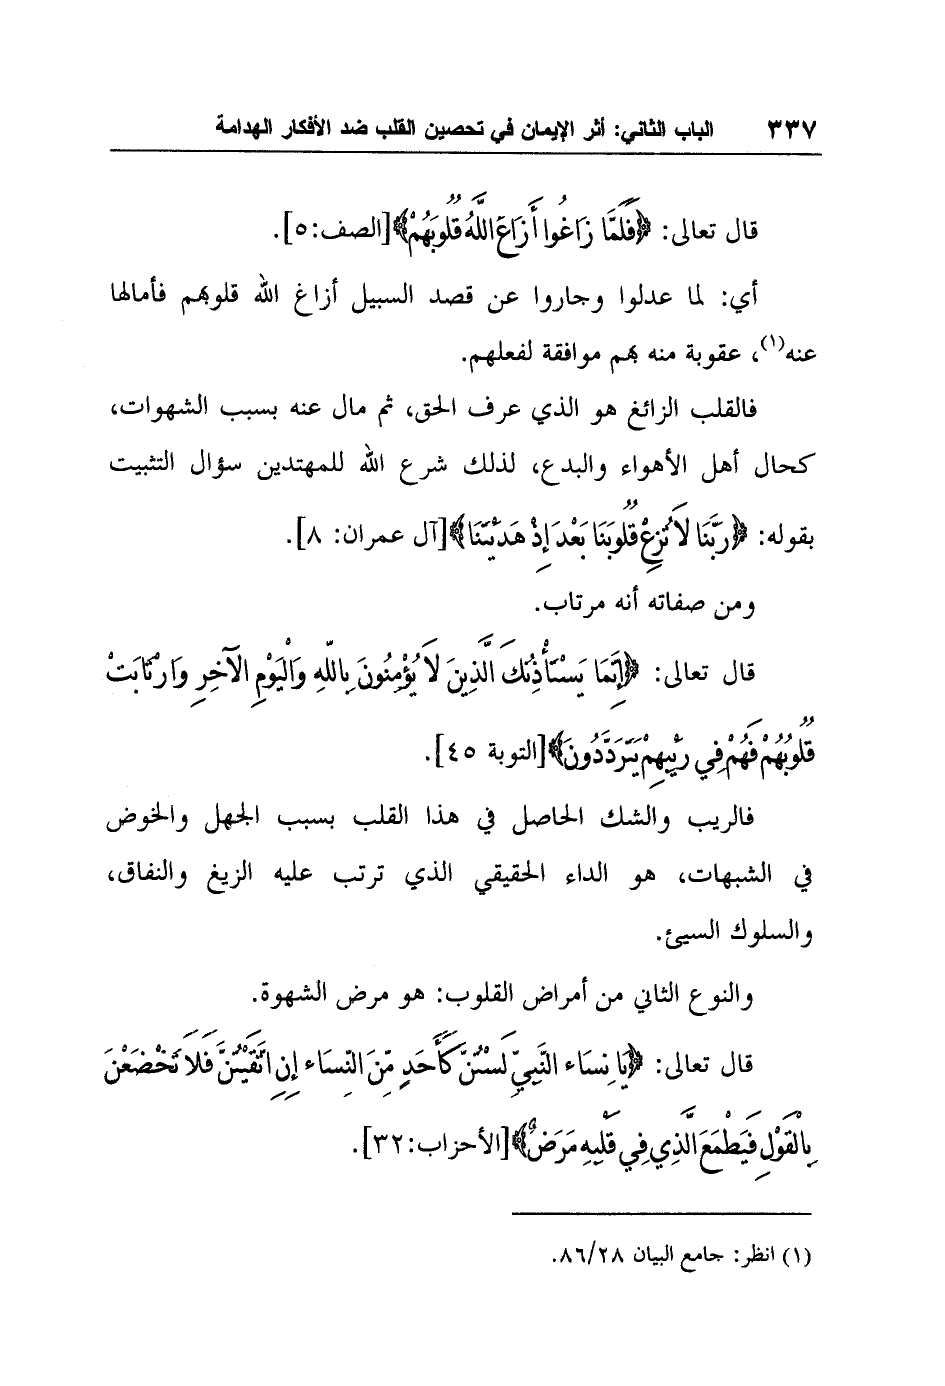 ٣٣٧ الباب الثاني: أثر الإيمان في تحصين القلب ضد الأفكار الهدامة
قال تعالى: ﴿فَلَمَّا زَاغُوا أَزَاغَ اللَّهُ قُلُوبَهُمْ﴾[الصف:٥].
أي: لما عدلوا وجاروا عن قصد السبيل أزاغ الله قلوبهم فأمالها
عنه(١)، عقوبة منه لهم موافقة لفعلهم.
فالقلب الزائغ هو الذي عرف الحق، ثم مال عنه بسبب الشهوات،
كحال أهل الأهواء والبدع، لذلك شرع الله للمهتدين سؤال التثبيت
بقوله: ﴿رَبَّنَا لَا تُزِغْ قُلُوبَنَا بَعْدَ إِذْ هَدَيْتَنَا﴾[آل عمران: ٨].
ومن صفاته أنه مرتاب.
قال تعالى: ﴿إِنَّمَا يَسْتَأْذِنُكَ الَّذِينَ لَا يُؤْمِنُونَ بِاللَّهِ وَالْيَوْمِ الْآخِرِ وَارْتَابَتْ
قُلُوبُهُمْ فَهُمْ فِي رَيْبِهِمْ يَتَرَدَّدُونَ﴾[التوبة ٤٥].
فالريب والشك الحاصل في هذا القلب بسبب الجهل والخوض
في الشبهات، هو الداء الحقيقي الذي ترتب عليه الزيغ والنفاق،
والسلوك السيئ.
والنوع الثاني من أمراض القلوب: هو مرض الشهوة.
قال تعالى: ﴿يَا نِسَاءَ النَّبِيِّ لَسْتُنَّ كَأَحَدٍ مِّنَ النِّسَاءِ إِنِ اتَّقَيْتُنَّ فَلَا تَخْضَعْنَ
بِالْقَوْلِ فَيَطْمَعَ الَّذِي فِي قَلْبِهِ مَرَضٌ﴾[الأحزاب:٣٢].
(١) انظر: جامع البيان ٨٦/٢٨.